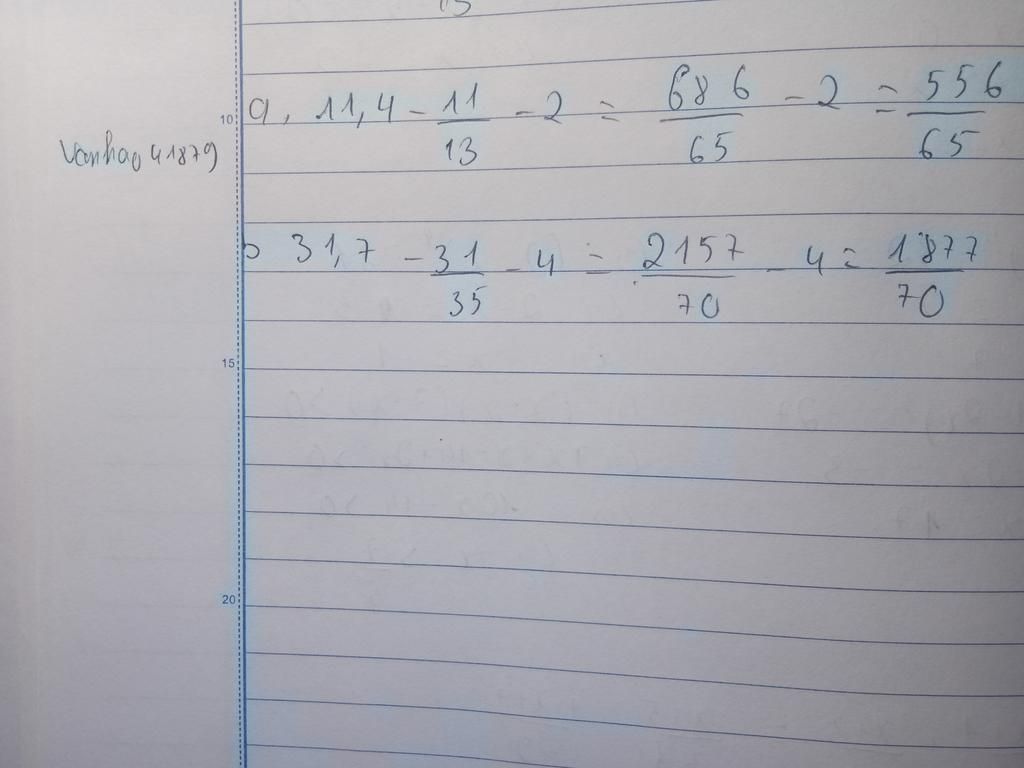 10
a, 11,4 - 11/13 - 2 = 686/65 - 2 = 556/65
vanhao41879
b 31,7 - 31/35 - 4 = 2157/70 - 4 = 1877/70
15
20